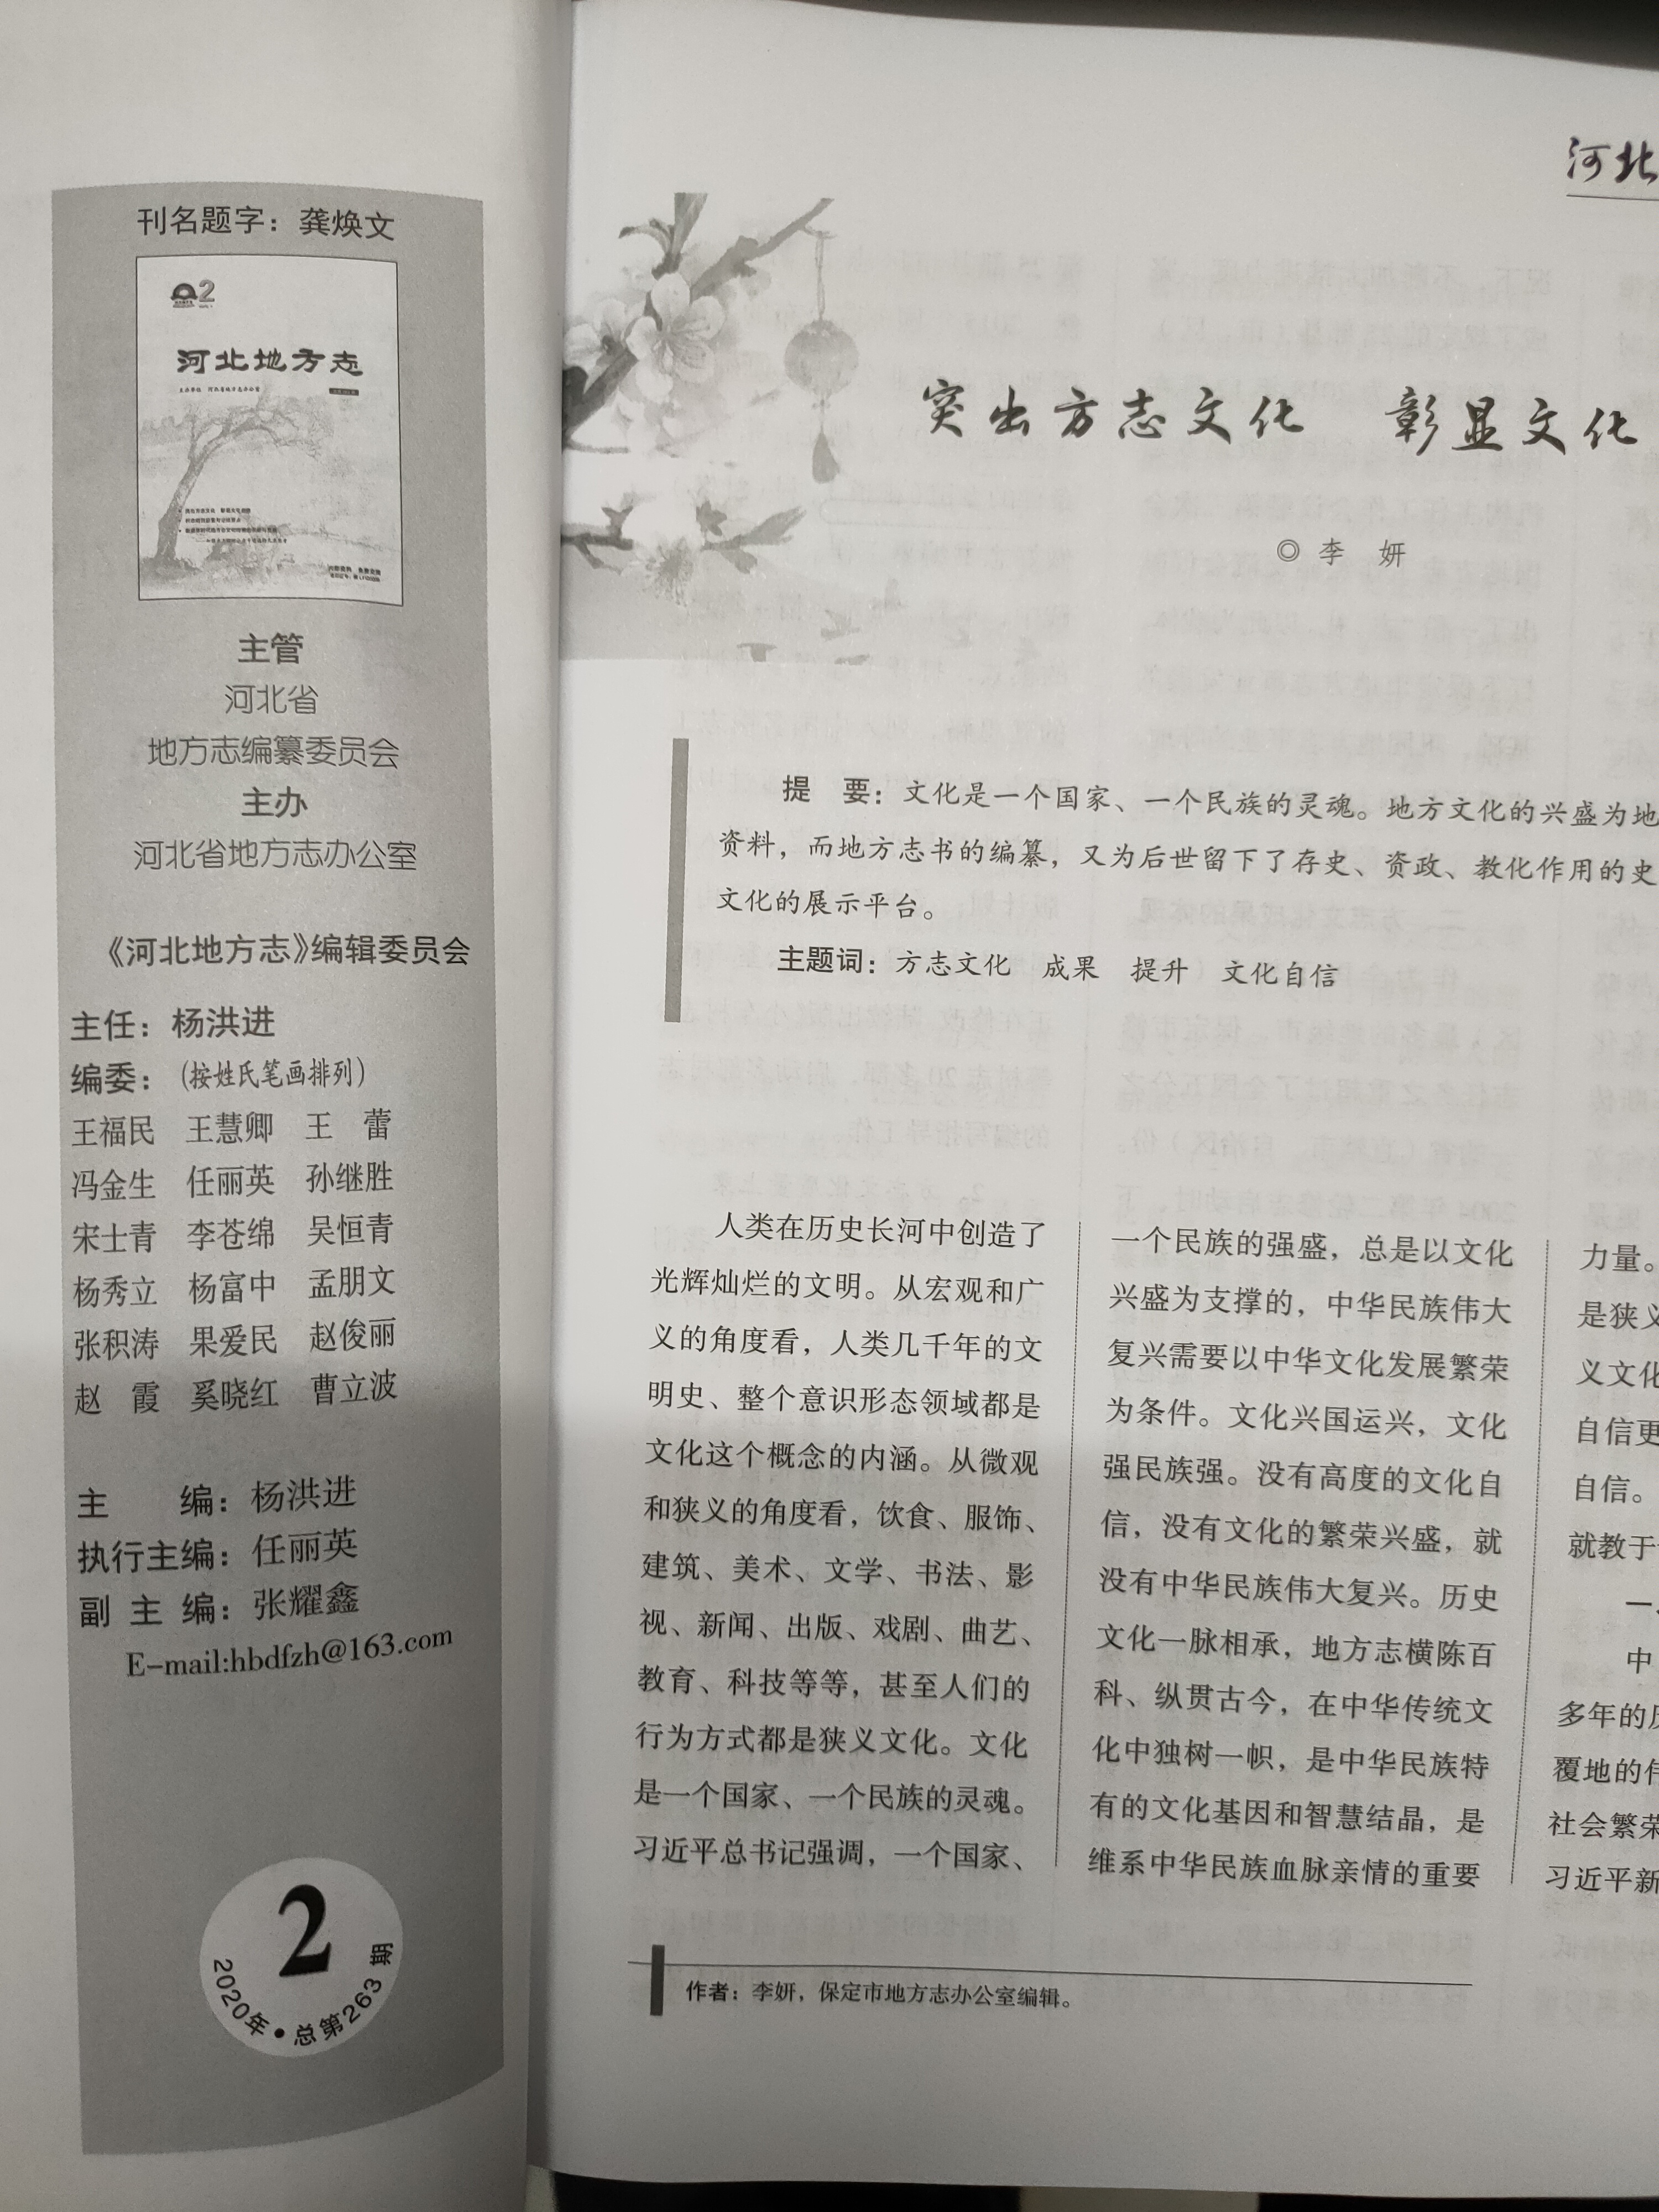 刊名题字：龚焕文
2
河北地方志
主管
河北省
地方志编纂委员会
主办
河北省地方志办公室
《河北地方志》编辑委员会
主任：杨洪进
编委：（按姓氏笔画排列）
王福民 王慧卿 王 蕾
冯金生 任丽英 孙继胜
宋士青 李苍绵 吴恒青
杨秀立 杨富中 孟朋文
张积涛 果爱民 赵俊丽
赵 霞 奚晓红 曹立波
主 编：杨洪进
执行主编：任丽英
副 主 编：张耀鑫
E-mail:hbdfzh@163.com
2
2020年·总第263期
河北
突出方志文化 彰显文化
◎ 李 妍
提 要：文化是一个国家、一个民族的灵魂。地方文化的兴盛为地
资料，而地方志书的编纂，又为后世留下了存史、资政、教化作用的史
文化的展示平台。
主题词：方志文化 成果 提升 文化自信
人类在历史长河中创造了
光辉灿烂的文明。从宏观和广
义的角度看，人类几千年的文
明史、整个意识形态领域都是
文化这个概念的内涵。从微观
和狭义的角度看，饮食、服饰、
建筑、美术、文学、书法、影
视、新闻、出版、戏剧、曲艺、
教育、科技等等，甚至人们的
行为方式都是狭义文化。文化
是一个国家、一个民族的灵魂。
习近平总书记强调，一个国家、
一个民族的强盛，总是以文化
兴盛为支撑的，中华民族伟大
复兴需要以中华文化发展繁荣
为条件。文化兴国运兴，文化
强民族强。没有高度的文化自
信，没有文化的繁荣兴盛，就
没有中华民族伟大复兴。历史
文化一脉相承，地方志横陈百
科、纵贯古今，在中华传统文
化中独树一帜，是中华民族特
有的文化基因和智慧结晶，是
维系中华民族血脉亲情的重要
力量。
是狭义
义文化
自信更
自信。
就教于
一
中
多年的历
覆地的伟
社会繁荣
习近平新
作者：李妍，保定市地方志办公室编辑。